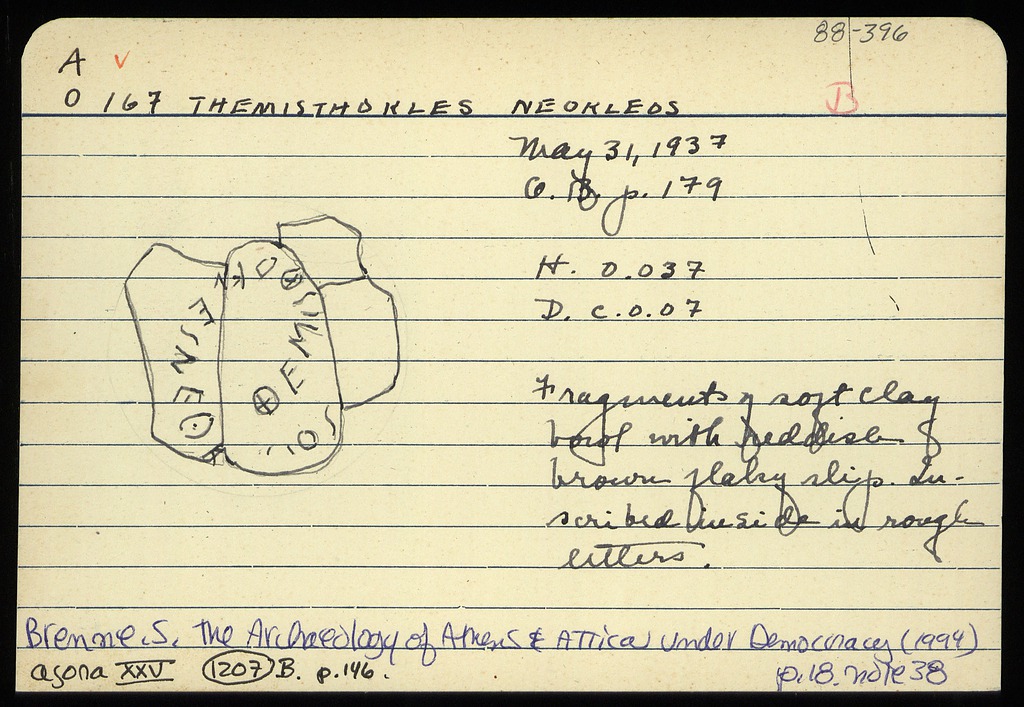 88-396
A v
O 167 THEMISTHOKLES NEOKLEOS B
May 31, 1937
p. 179
H. 0.037
D. c. 0.07
Fragments of soft clay
bowl with reddish
brown flaky slip. In-
scribed inside in rough
letters.
Brenne.S. The Archaeology of Athens & Attica under Democracy (1994)
p.18. note 38
agora XXV 1207 B. p.146.